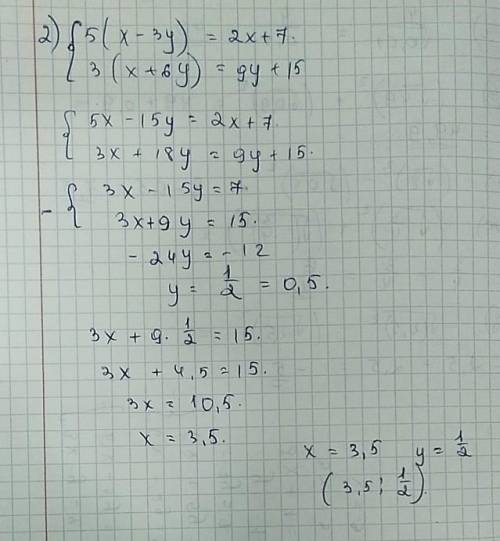 2) { 5(x - 3y) = 2x + 7.
3(x + 6y) = 9y + 15
{ 5x - 15y = 2x + 7.
3x + 18y = 9y + 15.
- { 3x - 15y = 7.
3x + 9y = 15.
- 24y = - 12
y = 1/2 = 0,5.
3x + 9 · 1/2 = 15.
3x + 4,5 = 15.
3x = 10,5.
x = 3,5.
x = 3,5 y = 1/2
(3,5; 1/2).